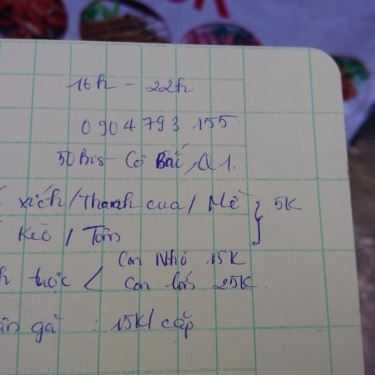 16h - 22h
0904 793 155
50Bis Cô Bắc, Q1.
xích / Thanh cua / Mề } 5K
Kèo / Tôm
Con Nhỏ 15K
tuộc < Con lớn 25K
gà : 15K/cặp